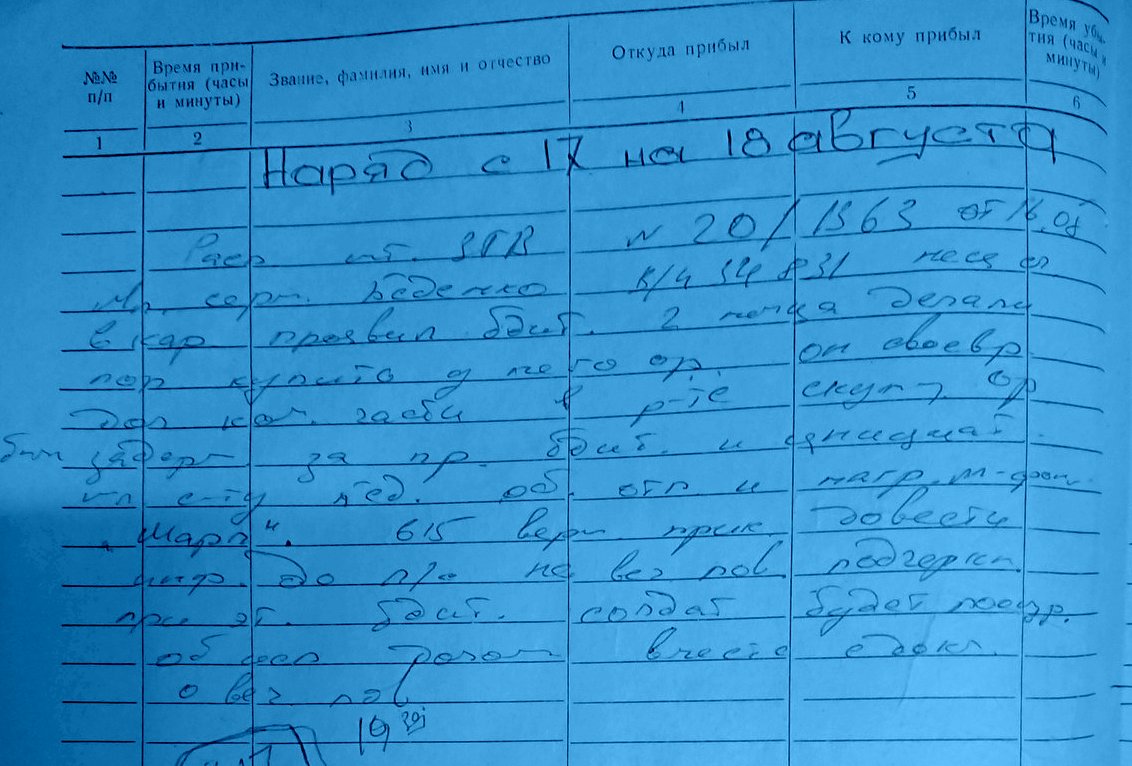 №№ п/п
Время при-
бытия (часы
и минуты)
Звание, фамилия, имя и отчество
Откуда прибыл
К кому прибыл
Время убы-
тия (часы и
минуты)
1 2 3 4 5 6
Наряд с 17 на 18 августа
шт. ЗГВ № 20/1363 от 16.08
Мл. серж. в/ч 34831 неся сл
в кар проявил бдит. 2 немца делали
поп купить у него ор. он своевр.
дол кар. засаби в р-те скуп. ор
был задерж. за пр. бдит. и инициат.
об. отп и нагр. м-фон.
"Шарп". 615 верт. прик. довести
инф. до л/с на веч. пов. подчеркн.
при эт. бдит. солдат будет поощр.
об дол вместе с докл.
о веч. пов
19 30